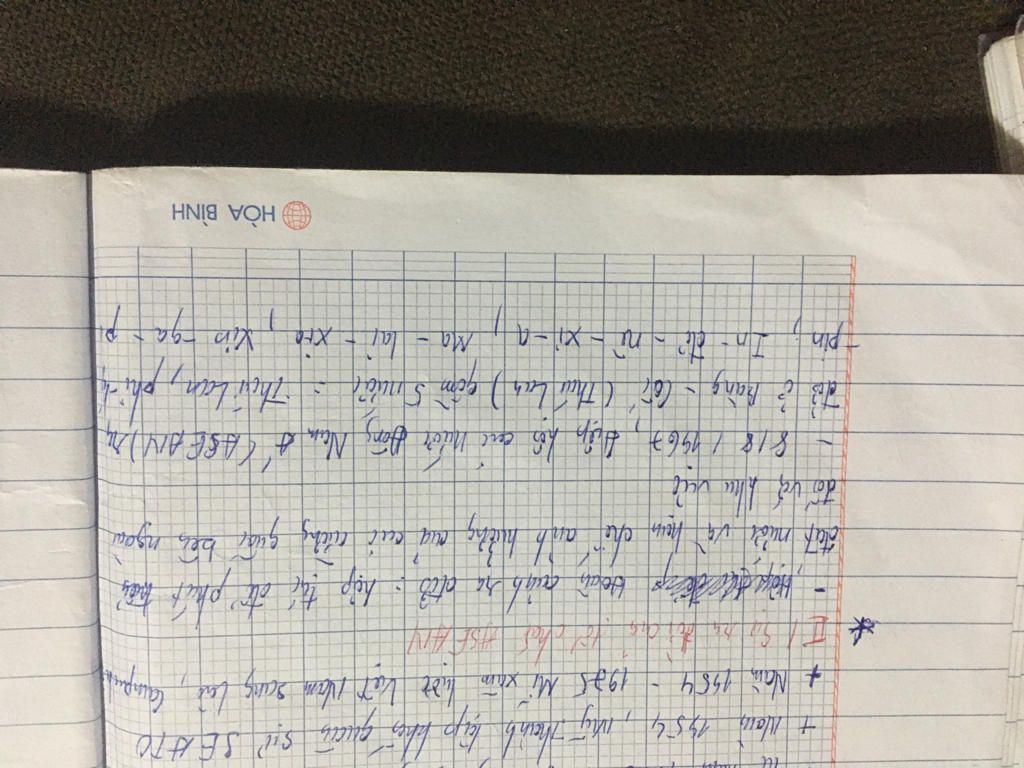 + Năm 1954, Mỹ thành lập khối quân sự SEATO
+ Năm 1954 - 1975 Mĩ xâm lược Việt Nam sang Lào,
* II / Sự ra đời của tổ chức ASEAN
- Hoàn cảnh ra đời : hợp tác để phát triển
đất nước và hạn chế ảnh hưởng của các cường quốc bên ngoài
đối với khu vực
- 8/8/1967, Hiệp hội các nước Đông Nam Á (ASEAN) ra
đời ở Băng - Cốc (Thái Lan) gồm 5 nước : Thái Lan, phi-líp
pin, In - đô - nê - xi - a, Ma - lai - xia, Xin - ga - p
HÒA BÌNH